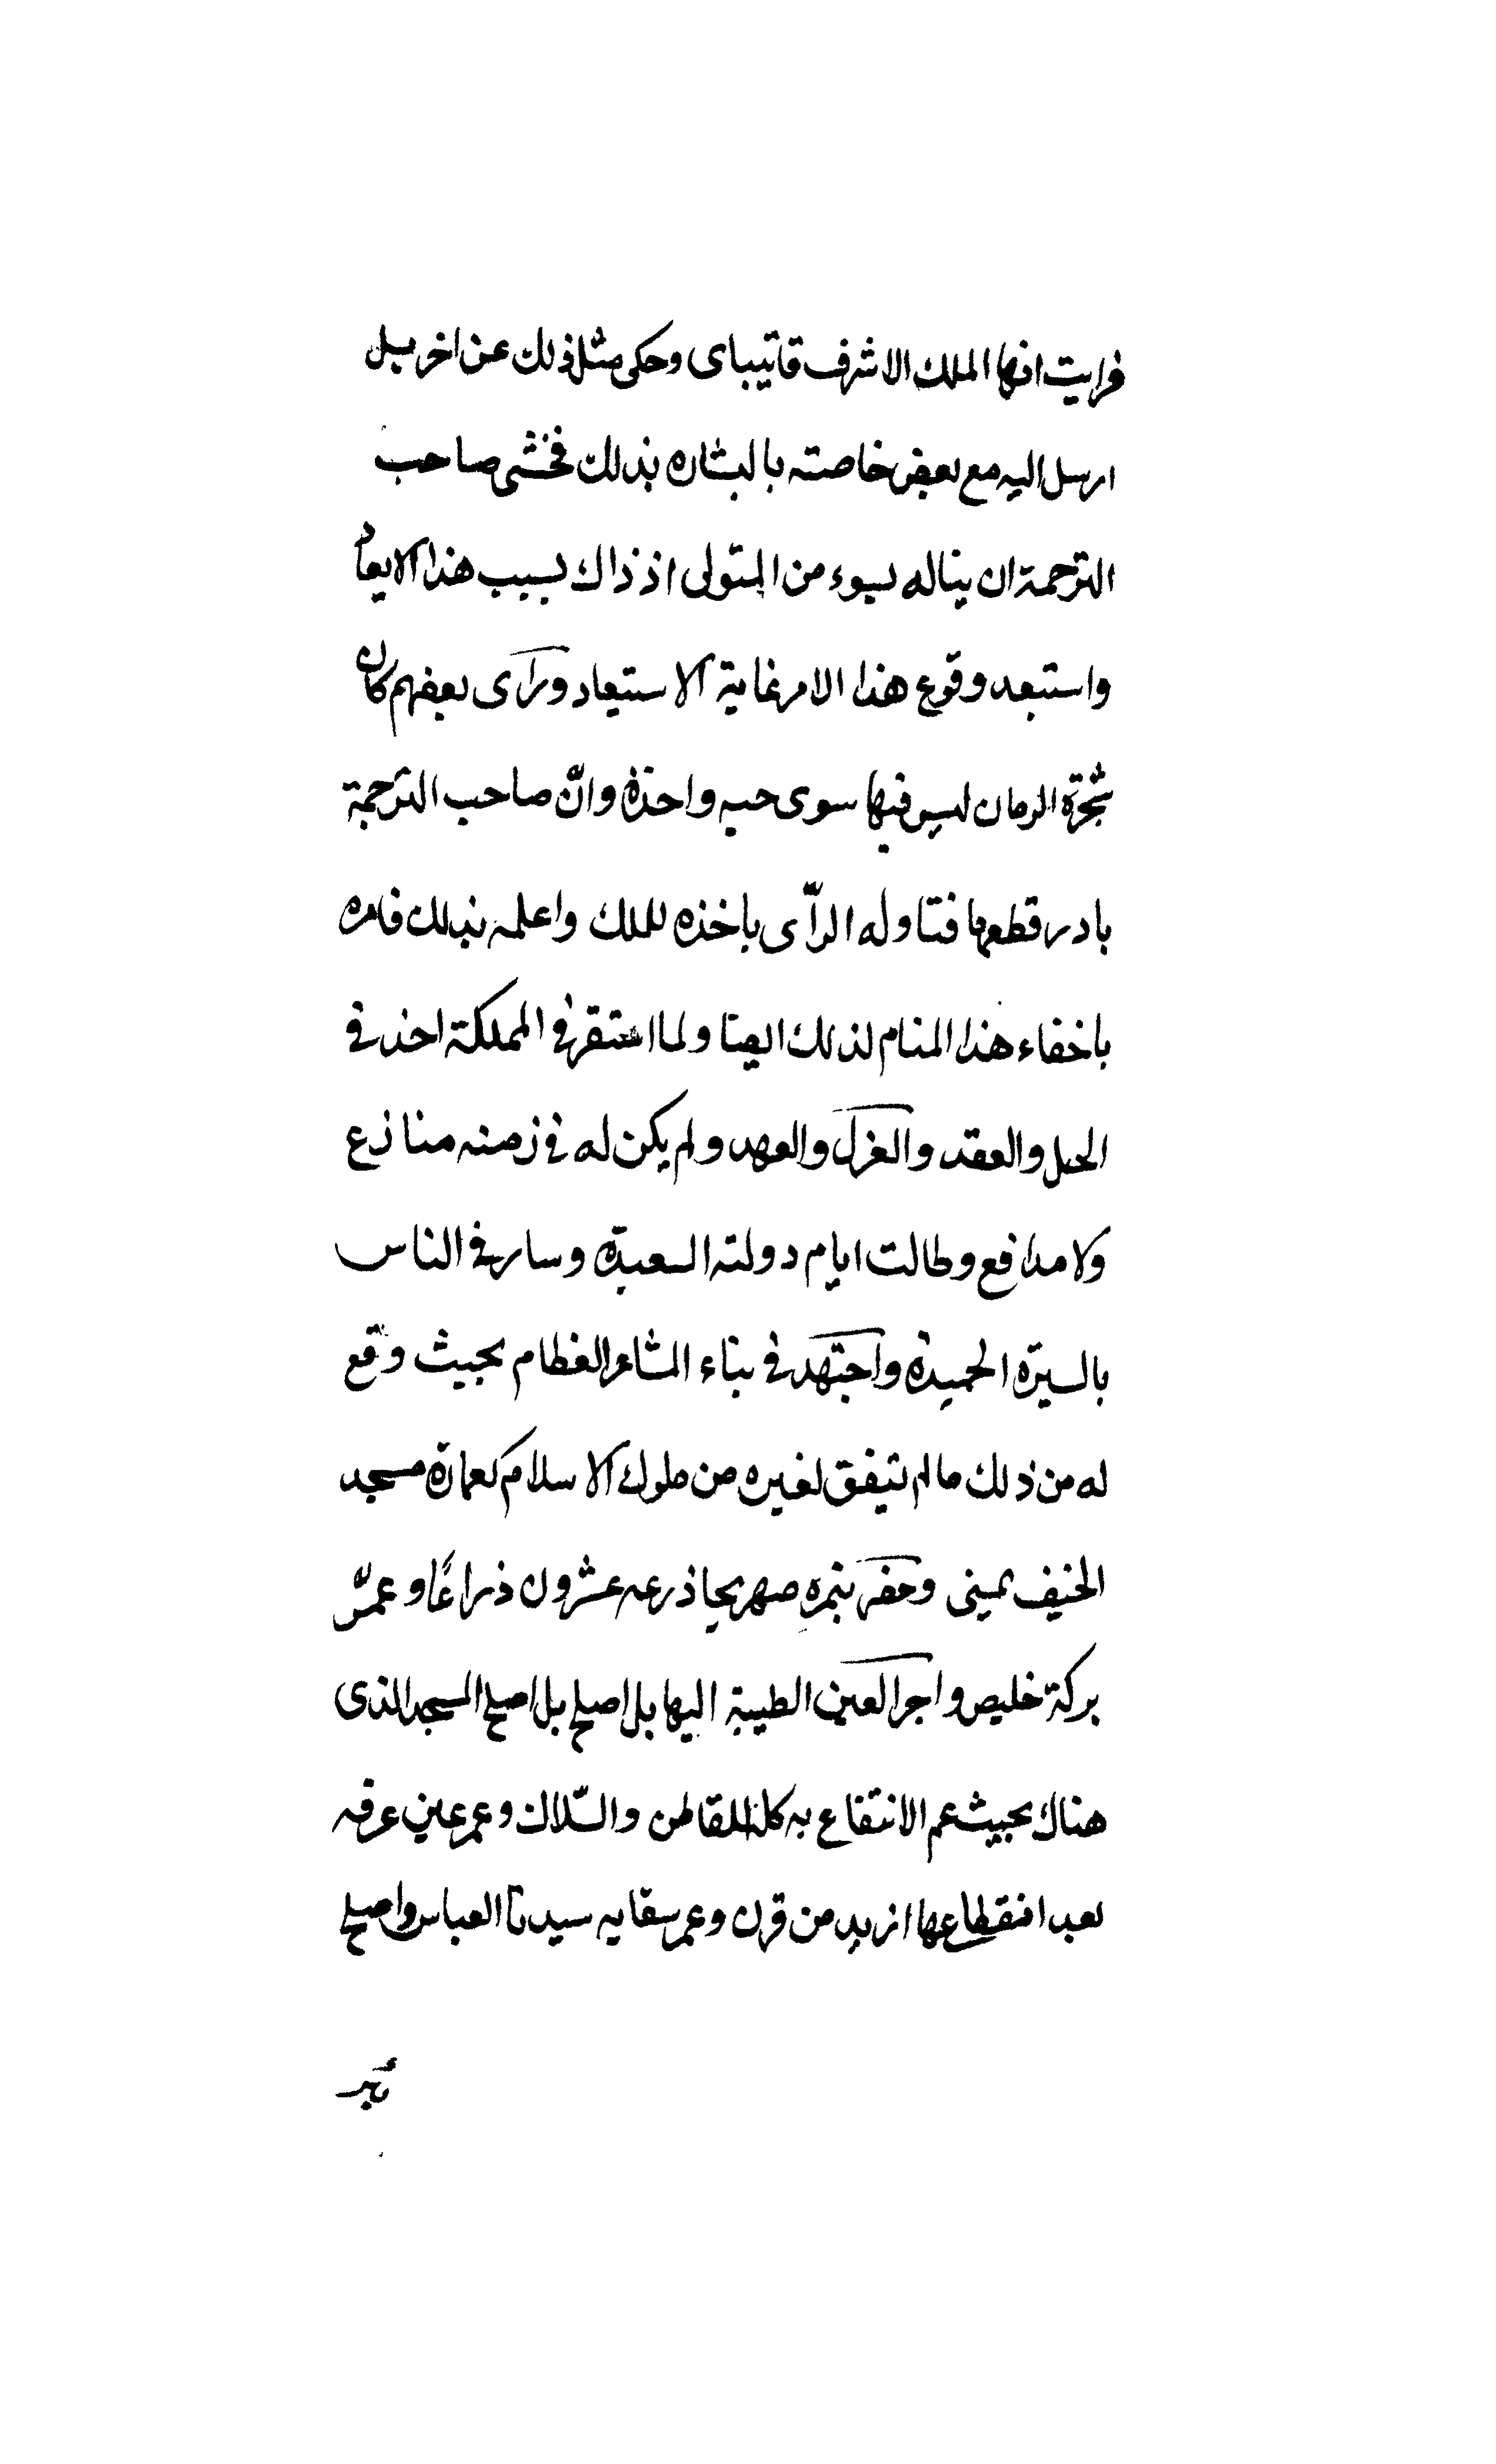 فرايت انها الملك الاشرف قاتيباى وحكى مثل ذلك عن اخر بل
ارسل اليه مع بعض خاصته بالبشاره بذلك فخشى صاحب
الترجمة ان يناله بسوء من المتولى اذ ذاك بسبب هذا الايعاد
واستبعد وقوع هذا الامر غاية الاستيعاد ورآى بعضهم كان
شجرة الرمان ليس فيها سوى حبه واحذة وانّ صاحب الترجمة
بادر قطعها فتاوله الرآى باخذه للملك واعلمه بذلك فامره
باخفاء هذا المنام لذلك ايضا ولما استقر فى المملكة اخذ فى
الحل والعقد والغزل والعهد ولم يكن له فى زمنه منازع
ولا مدافع وطالت ايام دولته السعيدة وسار فى الناس
بالسيرة الحميدة واجتهد فى بناء المشاعر العظام بحيث وقع
له من ذلك ما لم يتفق لغيره من ملوك الاسلام كعمارة مسجد
الخيف بمينى وحفر بنمره صهريجا ذرعه عشرون ذراعًا وعمّر
بركة خليص واجرا العين الطيبة اليها بل اصلح بل اصلح المسجد الذى
هناك بحيث عم الانتفاع به كله للقاطن والسّلاك وعمر عين عرفه
بعد انقطاعها ازيد من قرن وعمر سقايه سيدنا العباس واصلح
بئر